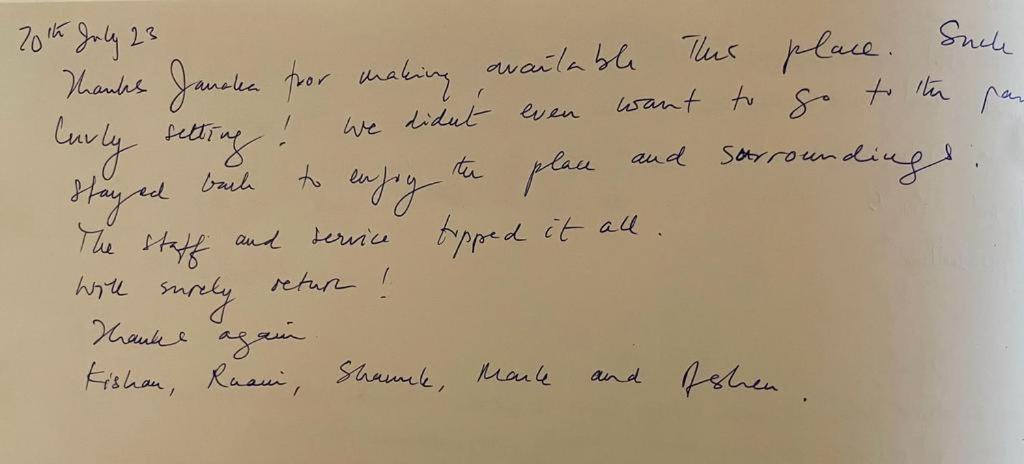 20th July 23
Thanks Janaka for making available this place. Such
lovely setting! We didn't even want to go to the par
stayed back to enjoy the place and surroundings.
The staff and service topped it all.
Will surely return!
Thanks again
Kishan, Shamik, Mark and Ashen.